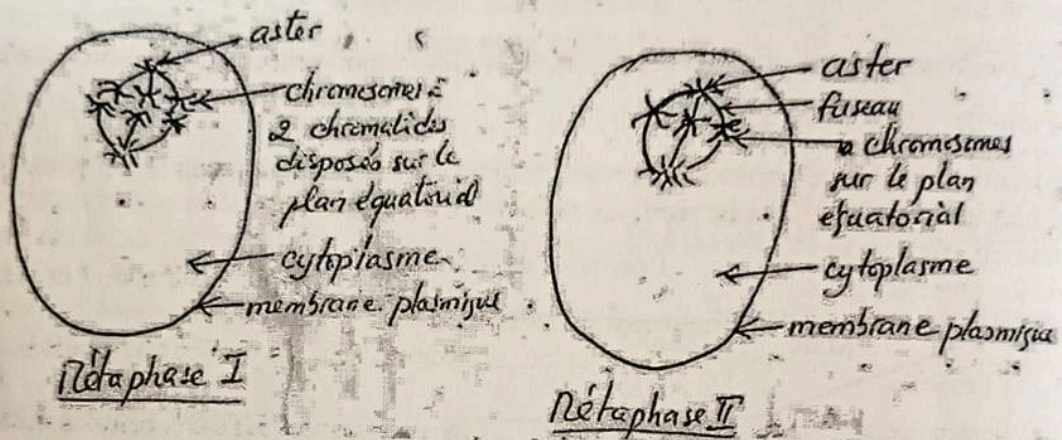 aster
chromosomes à
2 chromatides
disposés sur le
plan équatorial
cytoplasme
membrane plasmique
Métaphase I
aster
fuseau
chromosomes
sur le plan
équatorial
cytoplasme
membrane plasmique
Métaphase II